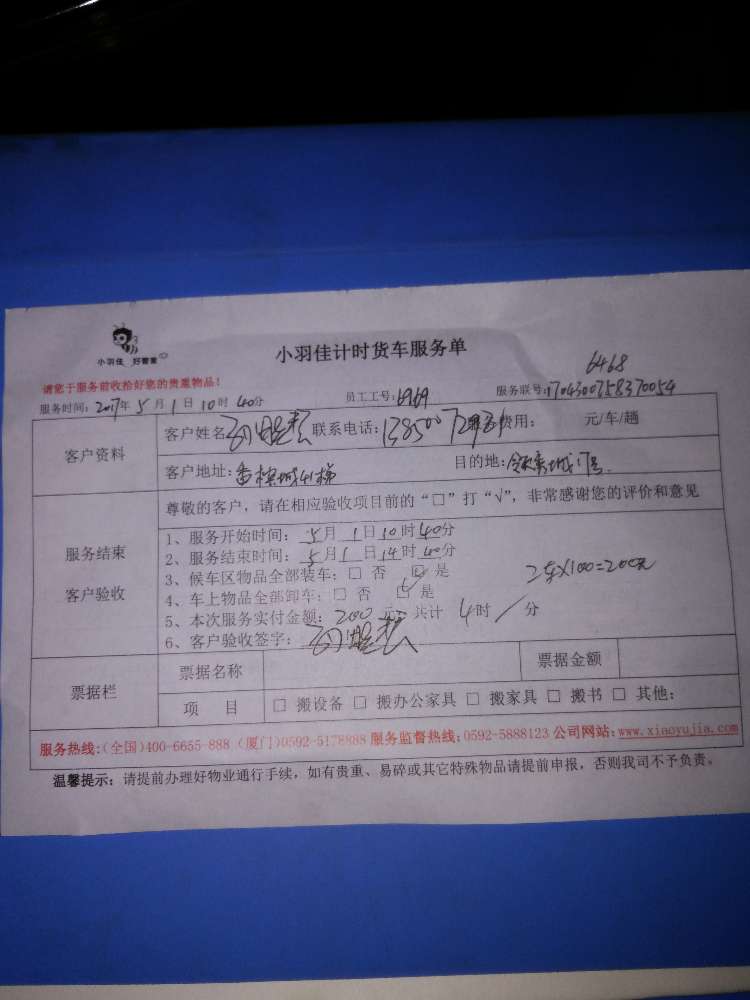 小羽佳 好管家
小羽佳计时货车服务单
6468
请您于服务前收拾好您的贵重物品!
服务时间: 2017年 5月 1日 10时 40分 员工工号: 6969 服务联号: 1704300758370054
客户资料
客户姓名 联系电话: 服务费用: 元/车/趟
客户地址: 目的地:
服务结束
客户验收
尊敬的客户,请在相应验收项目前的“□”打“√”,非常感谢您的评价和意见
1、服务开始时间: 5月 1日 10时 40分
2、服务结束时间: 5月 1日 14时 40分
3、候车区物品全部装车: □ 否 □ 是
2车X100=200元
4、车上物品全部卸车: □ 否 □ 是
5、本次服务实付金额: 200 元 共计 4时 / 分
6、客户验收签字:
票据栏
票据名称 票据金额
项 目 □ 搬设备 □ 搬办公家具 □ 搬家具 □ 搬书 □ 其他:
服务热线:(全国)400-6655-888 (厦门)0592-5178888 服务监督热线:0592-5888123 公司网站:www.xiaoyujia.com
温馨提示: 请提前办理好物业通行手续,如有贵重、易碎或其它特殊物品请提前申报,否则我司不予负责。